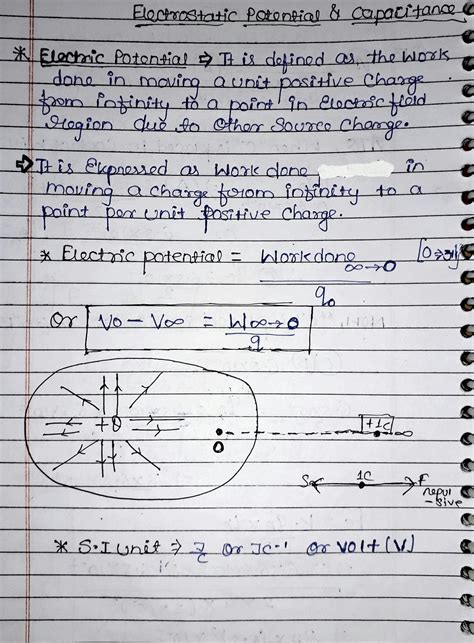 Electrostatic Potential & Capacitance
* Electric Potential ⇒ It is defined as, the Work
done in moving a unit positive Charge
from infinity to a point in Electric field
region due to Other Source Charge.
⇒ It is Expressed as Work done, in
moving a charge from infinity to a
point per unit positive Charge.
* Electric potential = Workdone ∞→O
q₀
Or Vo - V∞ = W∞→O
q
+Q
O
+1C
∞
S
1C
F
repul
-sive
* S.I unit ⇒ J/C Or JC⁻¹ Or VOlt (V)